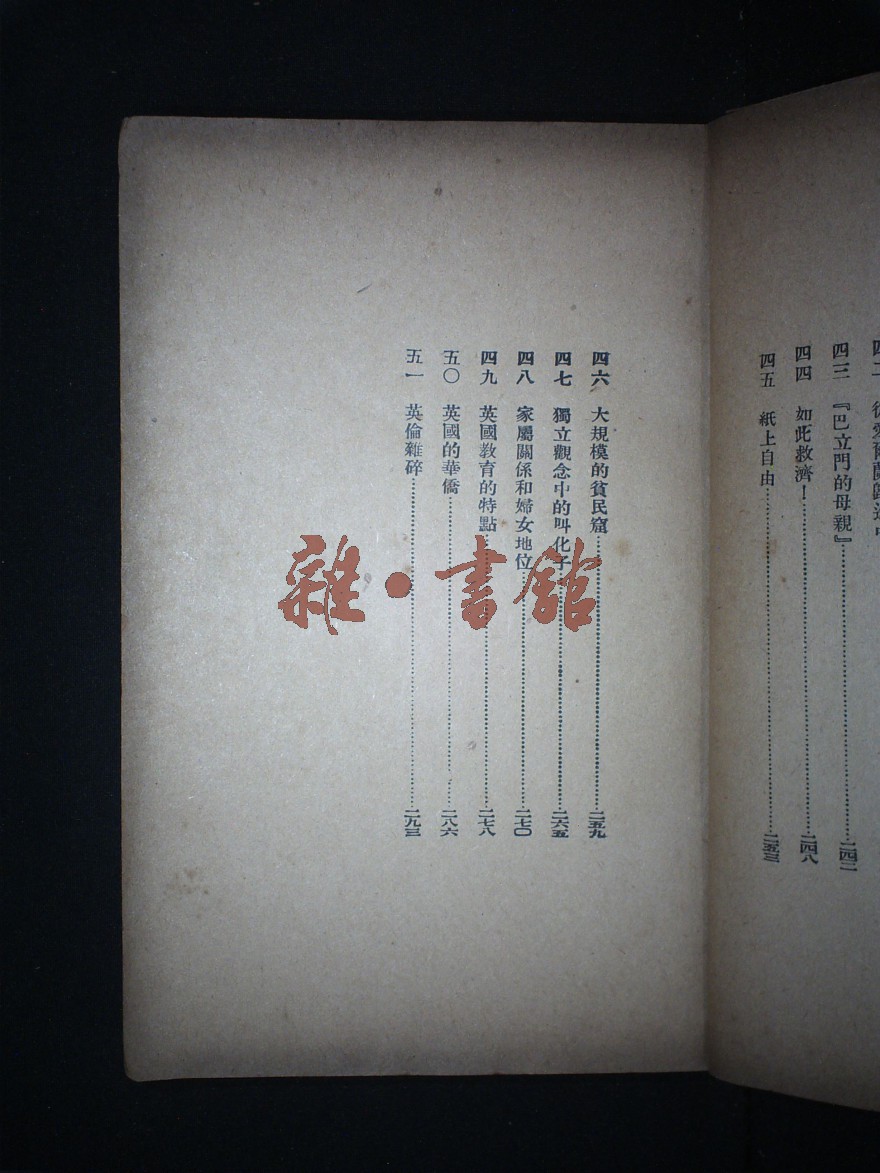 四三　『巴立門的母親』……二四二
四四　如此救濟！……二四八
四五　紙上自由……二五三
四六　大規模的貧民窟……二五九
四七　獨立觀念中的叫化子……二六五
四八　家屬關係和婦女地位……二七〇
四九　英國教育的特點……二七八
五〇　英國的華僑……二八六
五一　英倫雜碎……二九三
雜·書館